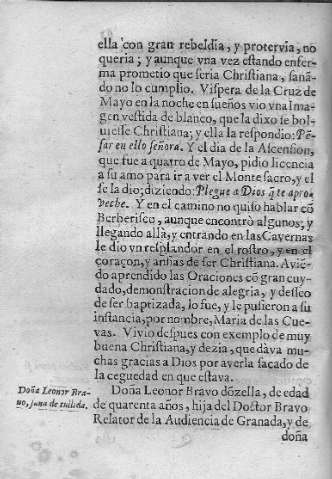 ella con gran rebeldia, y protervia, no
queria; y aunque vna vez estando enfer-
ma prometio que seria Christiana, sanã-
do no lo cumplio. Vispera de la Cruz de
Mayo en la noche en sueños vio vna Ima-
gen vestida de blanco, que la dixo se bol-
uiesse Christiana; y ella la respondio: Pẽ-
sar en ello señora. Y el dia de la Ascension,
que fue a quatro de Mayo, pidio licencia
a su amo para ir a ver el Monte sacro, y el
se la dio; diziendo: Plegue a Dios q̃ te apro-
veche. Y en el camino no quiso hablar cõ
Berberisco, aunque encontrò algunos; y
llegando allà, y entrando en las Cavernas
le dio vn resplandor en el rostro, y en el
coraçon, y ansias de ser Christiana. Aviẽ-
do aprendido las Oraciones cõ gran cuy-
dado, demonstracion de alegria, y desseo
de ser baptizada, lo fue, y le pusieron a su
instancia, por nombre, Maria de las Cue-
vas. Vivio despues con exemplo de muy
buena Christiana, y dezia, que dava mu-
chas gracias a Dios por averla sacado de
la ceguedad en que estava.
Doña Leonor Bra-
uo, sana de tullida.
Doña Leonor Bravo dõzella, de edad
de quarenta años, hija del Doctor Bravo
Relator de la Audiencia de Granada, y de
doña